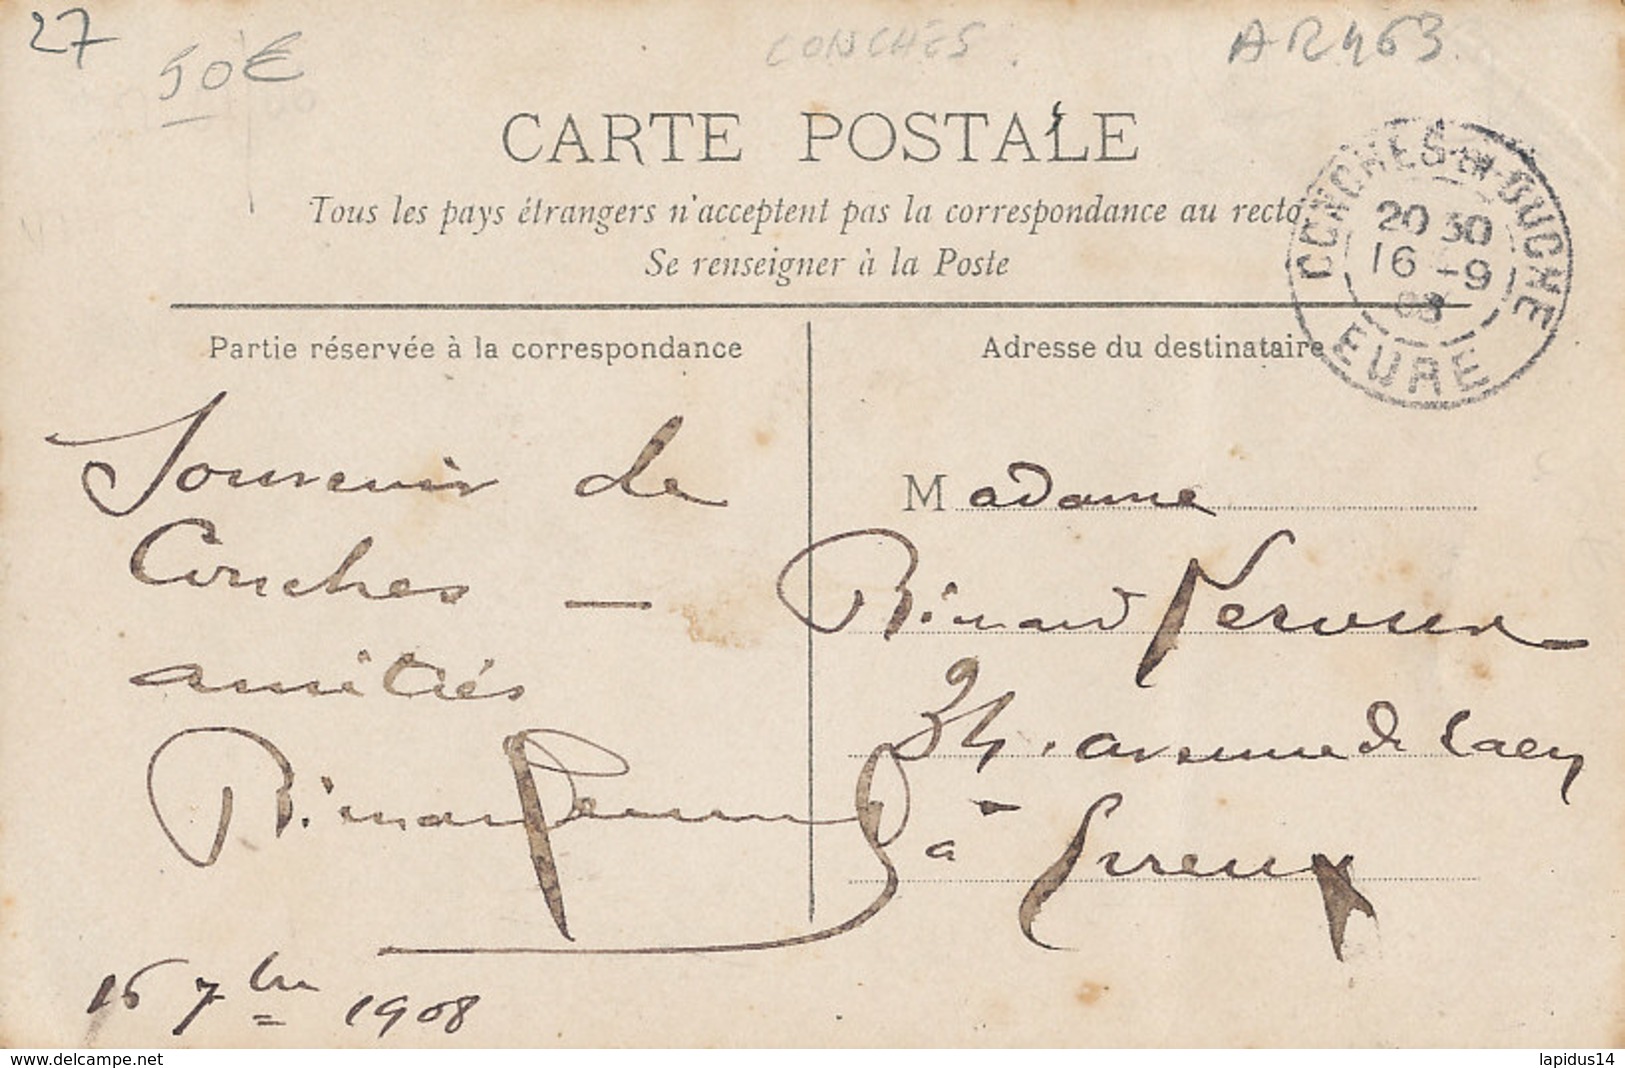 27
50€
CONCHES.
AR463
CARTE POSTALE
Tous les pays étrangers n'acceptent pas la correspondance au recto
Se renseigner à la Poste
CONCHES-EN-OUCHE
20 30
16 -9
08
EURE
Partie réservée à la correspondance
Souvenir de
Conches —
amitiés
16 7bre 1908
Adresse du destinataire
Madame
34, avenue de Caen
à Evreux
www.delcampe.net
lapidus14